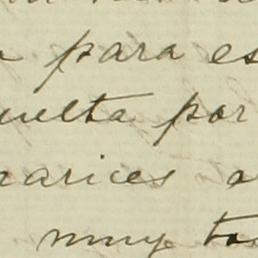 para es
uelta por
narices a
muy to